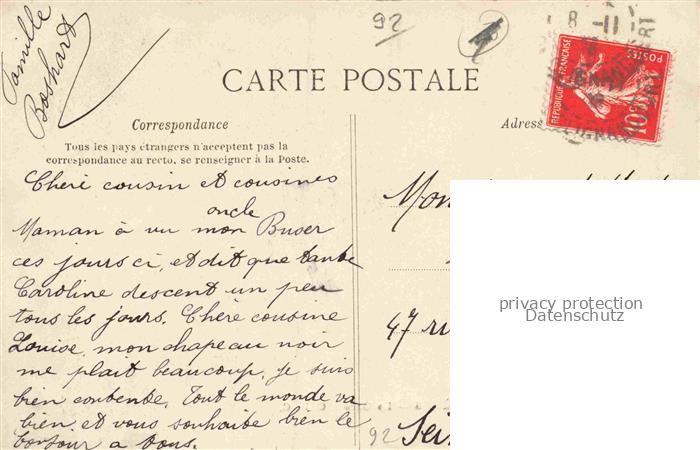 Famille
Boshart
92
CARTE POSTALE
Correspondance
Tous les pays étrangers n'acceptent pas la
correspondance au recto, se renseigner à la Poste.
Chère cousin et cousines
oncle
Maman à vu mon Buser
ces jours ci, et dit que tante
Caroline descent un peu
tous les jours. Chère cousine
Louise, mon chapeau noir
me plait beaucoup, je suis
bien contente. Tout le monde va
bien et vous souhaite bien le
bonjour a tous.
Adress
8 -11
REPUBLIQUE FRANÇAISE
POSTES
10c
Mon
47 ru
92
Sei
privacy protection
Datenschutz